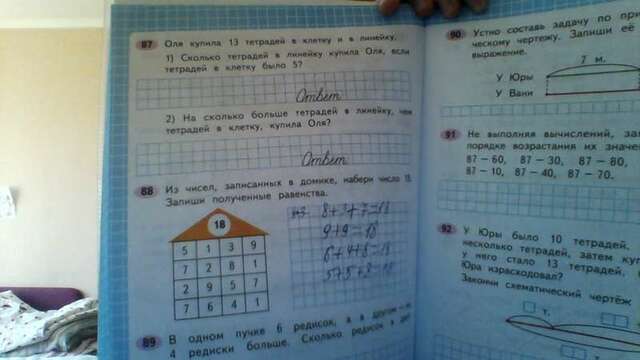 87 Оля купила 13 тетрадей в клетку и в линейку.
1) Сколько тетрадей в линейку купила Оля, если
тетрадей в клетку было 5?
Ответ
2) На сколько больше тетрадей в линейку, чем
тетрадей в клетку, купила Оля?
Ответ
88 Из чисел, записанных в домике, набери число 18.
Запиши полученные равенства.
18
5 1 3 9
7 2 8 1
2 9 5 7
7 6 4 1
8+3+7=18
9+9=18
6+4+8=18
5+5+8=18
89 В одном пучке 6 редисок, а в другом — на
4 редиски больше. Сколько редисок в
90 Устно составь задачу по
ческому чертежу. Запиши её
выражение.
7 м.
У Юры
У Вани
91 Не выполняя вычислений,
порядке возрастания их
87 − 60, 87 − 30, 87 − 80,
87 − 10, 87 − 40, 87 − 70.
92 У Юры было 10 тетрадей,
несколько тетрадей, затем
у него стало 13 тетрадей.
Юра израсходовал?
Закончи схематический чертёж
т.